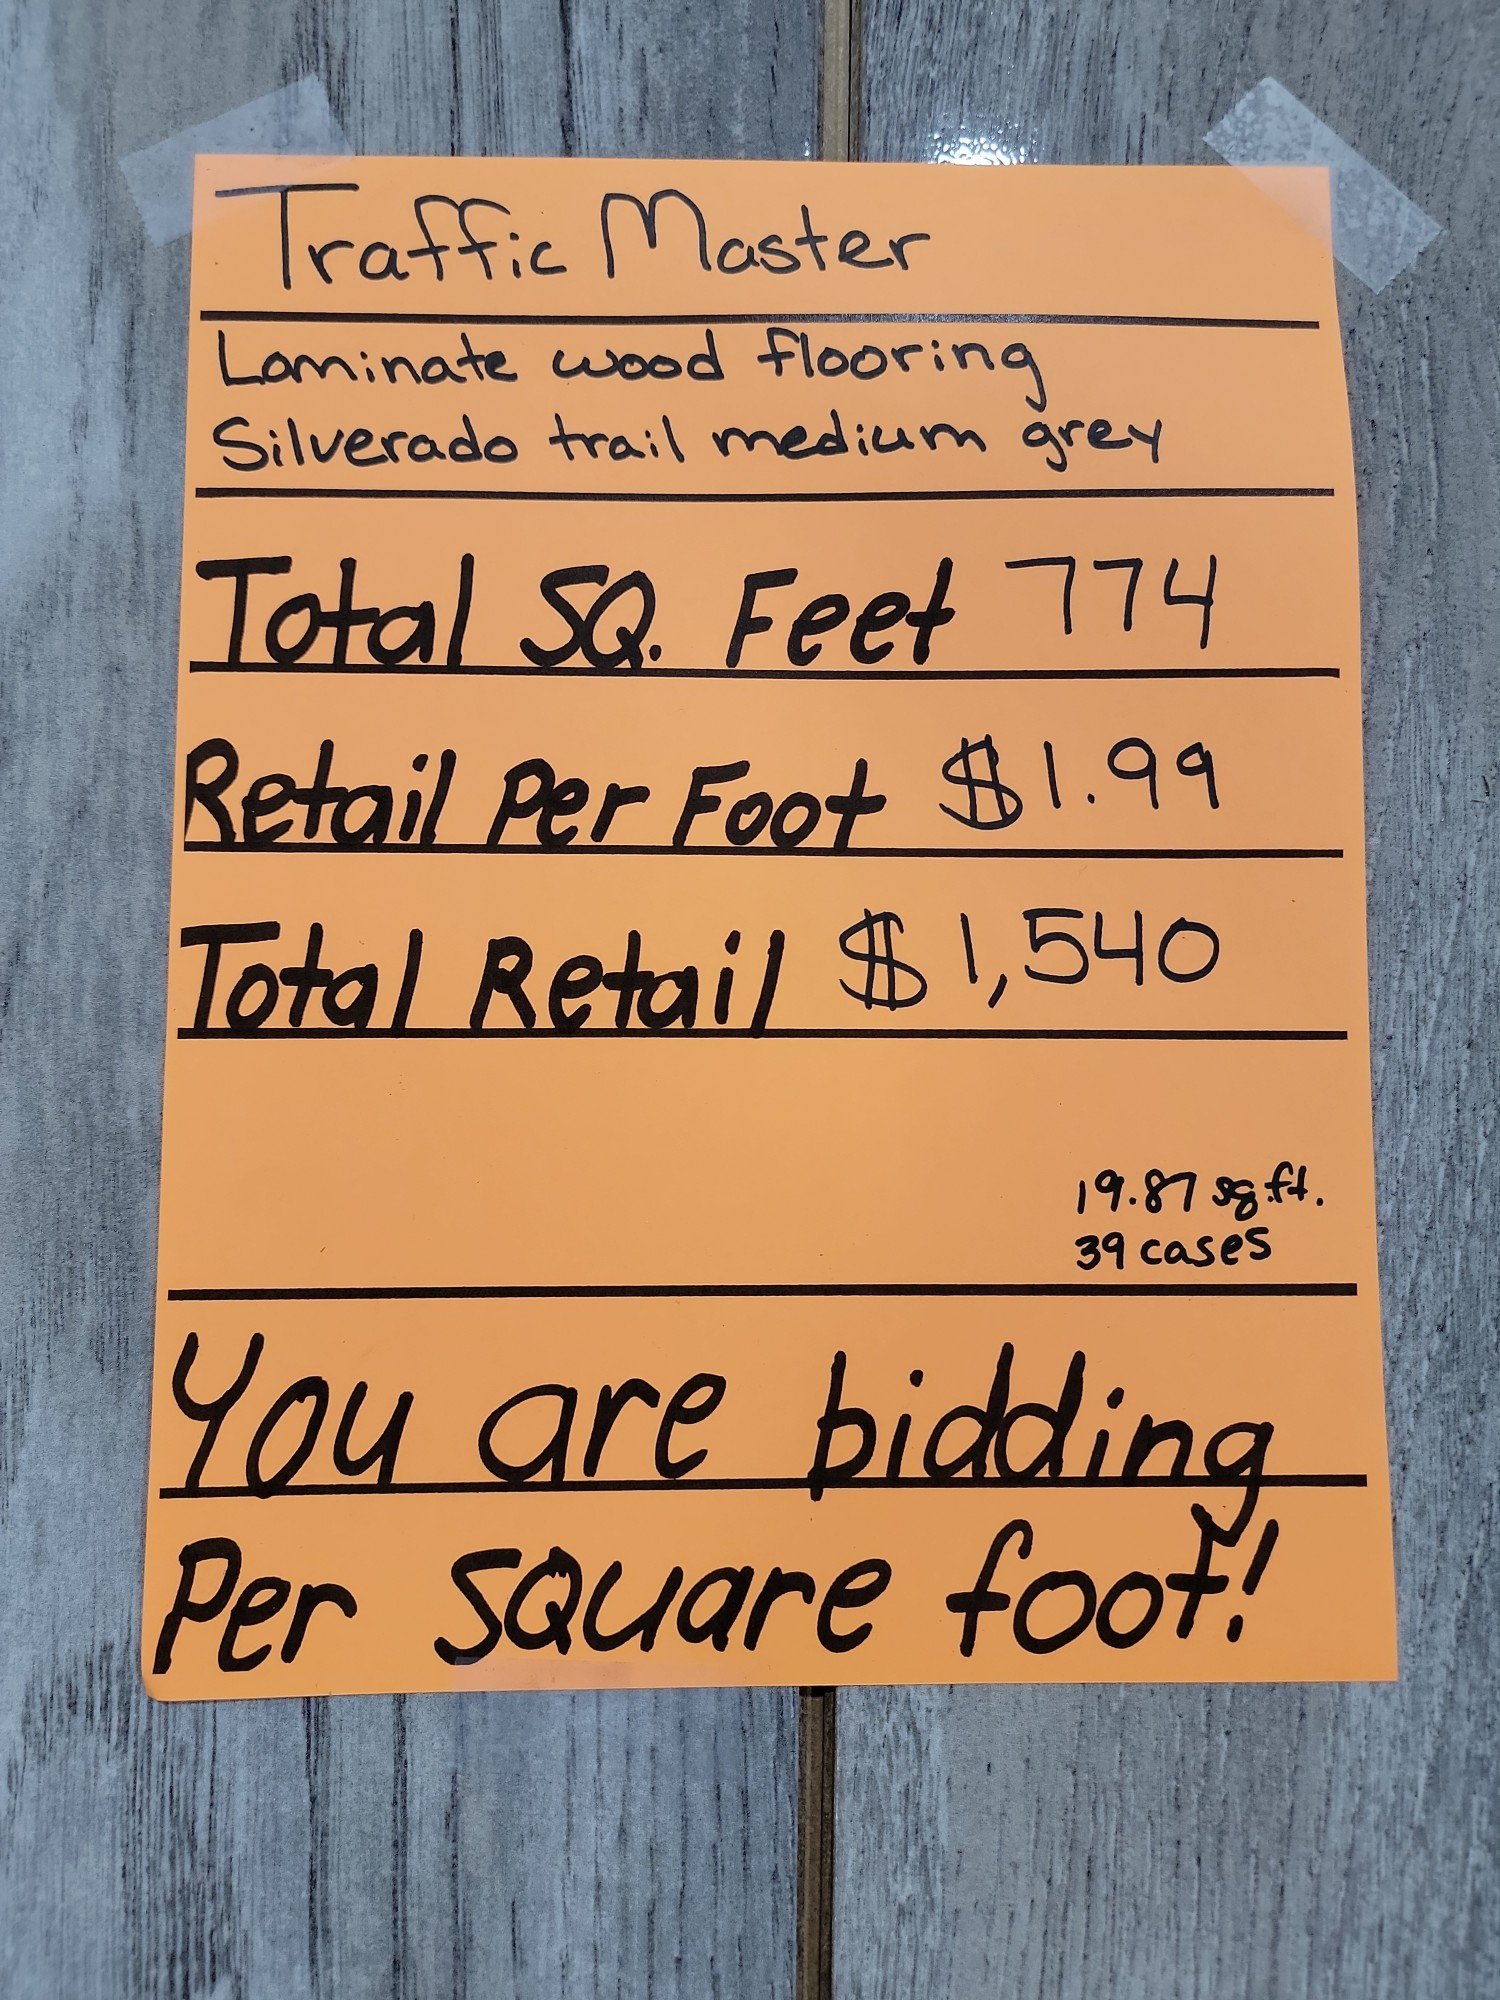 Traffic Master
Laminate wood flooring
Silverado trail medium grey
Total SQ. Feet 774
Retail Per Foot $1.99
Total Retail $1,540
19.87 sq.ft.
39 cases
You are bidding
Per square foot!